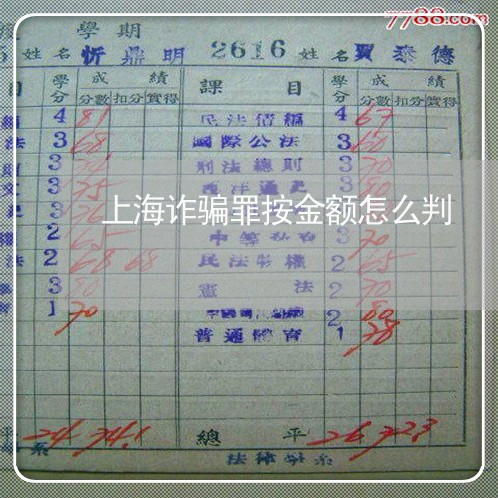 7788.com
學期
姓名 忻鼎明 2616 姓名 賈泰德
目 學分 成績 課目 學分 成績
分數 扣分 實得 分數 扣分 實得
4 81 民法債編 4 67
法 3 68 國際公法 3 60
3 刑法總則 3 70
3 75 西洋通史 3 80
上海诈骗罪按金额怎么判
2 65 3 70
法 2 68 68 民法物權 2 65
3 80 憲法 2 70
1 70 2 80
普通體育 1 78
平 24 74.1 總平 26 72.3
系 法律學系